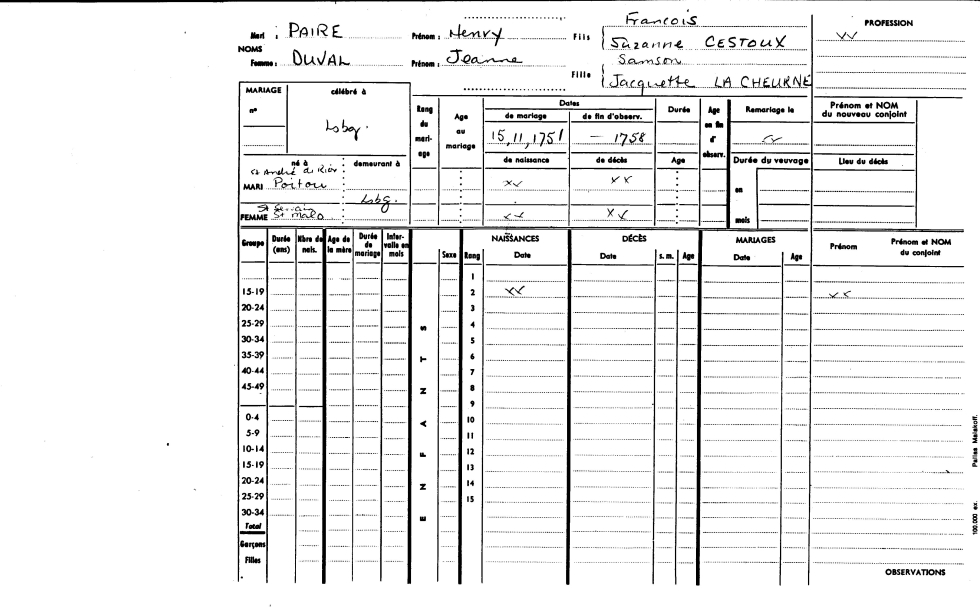 François
PROFESSION
Mari : PAIRE Prénom : Henry Fils Suzanne CESTOUX
NOMS
Samson
Femme : DUVAL Prénom : Jeanne
Fille Jacquette LA CHEURNE
MARIAGE célébré à
n°
Lsbg.
Rang du mariage
Age au mariage
Dates
de mariage de fin d'observ.
15,11,1751 — 1758
Durée
Age en fin d'observ.
Remariage le
Prénom et NOM du nouveau conjoint
né à demeurant à
de naissance de décès Age
Durée du veuvage
Lieu du décès
St André
MARI Poitou
xx xx
en
Lsbg.
St Servain
FEMME St Malo
xx xx
mois
Groupe Durée (ans) Nbre de nais. Age de la mère Durée de mariage Intervalle en mois
Sexe Rang
NAISSANCES
Date
DÉCÈS
Date s. m. Age
MARIAGES
Date Age
Prénom Prénom et NOM du conjoint
1
15-19 2 xx xx
20-24 3
25-29 4
30-34 5
35-39 6
40-44 7
45-49 8
9
0-4 10
5-9 11
10-14 12
15-19 13
20-24 14
25-29 15
30-34
Total
Garçons
Filles
ENFANTS
OBSERVATIONS
100.000 ex. Pallas Malakoff.